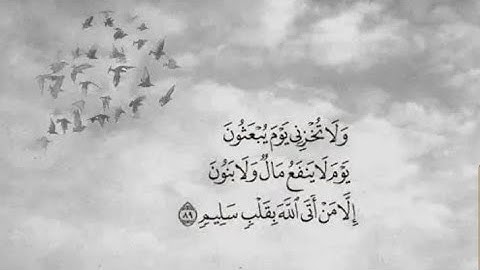 وَلَا تُخْزِنِى يَوْمَ يُبْعَثُونَ
يَوْمَ لَا يَنفَعُ مَالٌ وَلَا بَنُونَ
إِلَّا مَنْ أَتَى ٱللَّهَ بِقَلْبٍ سَلِيمٍ ٨٩